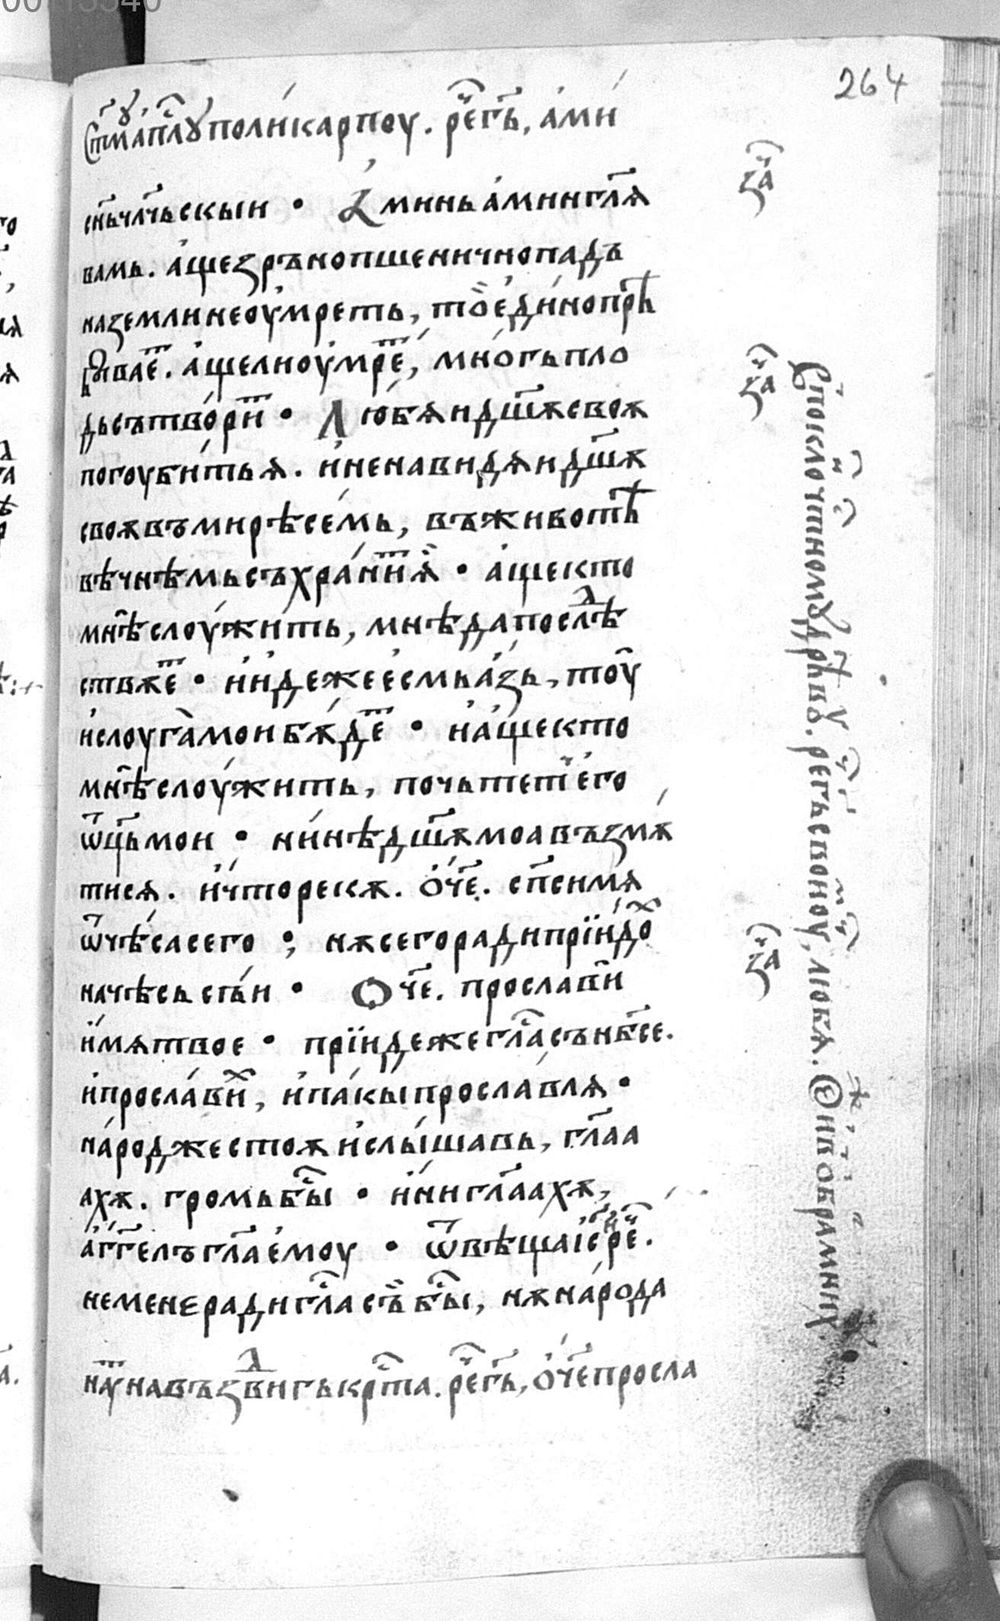 264
ст҃моу ап҃лоу поликарпоу. ре҃ г҃ь, а́ми
сн҃ь чл҃чьскыи • Аминь а́мин гл҃ѧ
вамь. а́ще зръно пшенично падъ
на земли не оу́мреть, то є҆ди́но прѣ
быває҃. а́ще ли оу́мре҃, мно́гь пло
дь сътво́ри҃ • Любѧи дш҃ѫ своѫ
погоуби́ть ѧ. и҆ ненавидѧи дш҃ѫ
своѫ въ мирѣ семь, въ животѣ
вѣчнѣмь съхра́ни҃ ѧ • а́ще кто
мнѣ слоу́жить, мнѣ да послѣ
ствꙋє҃ • и҆ и҆деже є҆смь а́зь, тоу
и҆ слоуга мои бѫ́де҃ • и҆ а́ще кто
мнѣ слоу́жить, почьтет є҆го
ѡ҃ць мои • ни́нѣ дш҃ѫ моа възмѫ
ти сѧ. и҆ что рекѫ. о́ч҃е. сп҃си мѧ
ѿ чѣса сего • нѫ сего ради прїидо҃
на чѣсь сьи • Оч҃е. прослави
и҆мѧ твое • прїиде же гл҃а съ нб҃се.
и҆ просла́ви҃, и҆ па́кы прославлѧ •
наро́д же стоѫ и҆ слы́шавь, гл҃аа
ахѫ. громь бы҃ • и҆ни гл҃аахѫ,
а҆гг҃елъ гл҃а є҆моу • ѿвѣща і҃с рє҃.
не мене ради гл҃а съ бы҃, нѫ наро́да
на въздви г҃ь кр҃та. ре҃ г҃ь, о́ч҃е просла
за҃
за҃
за҃
поклo чтномоу дрѣвоу. ре҃ г҃ь своноу, любѧ. ѻни в обрамних